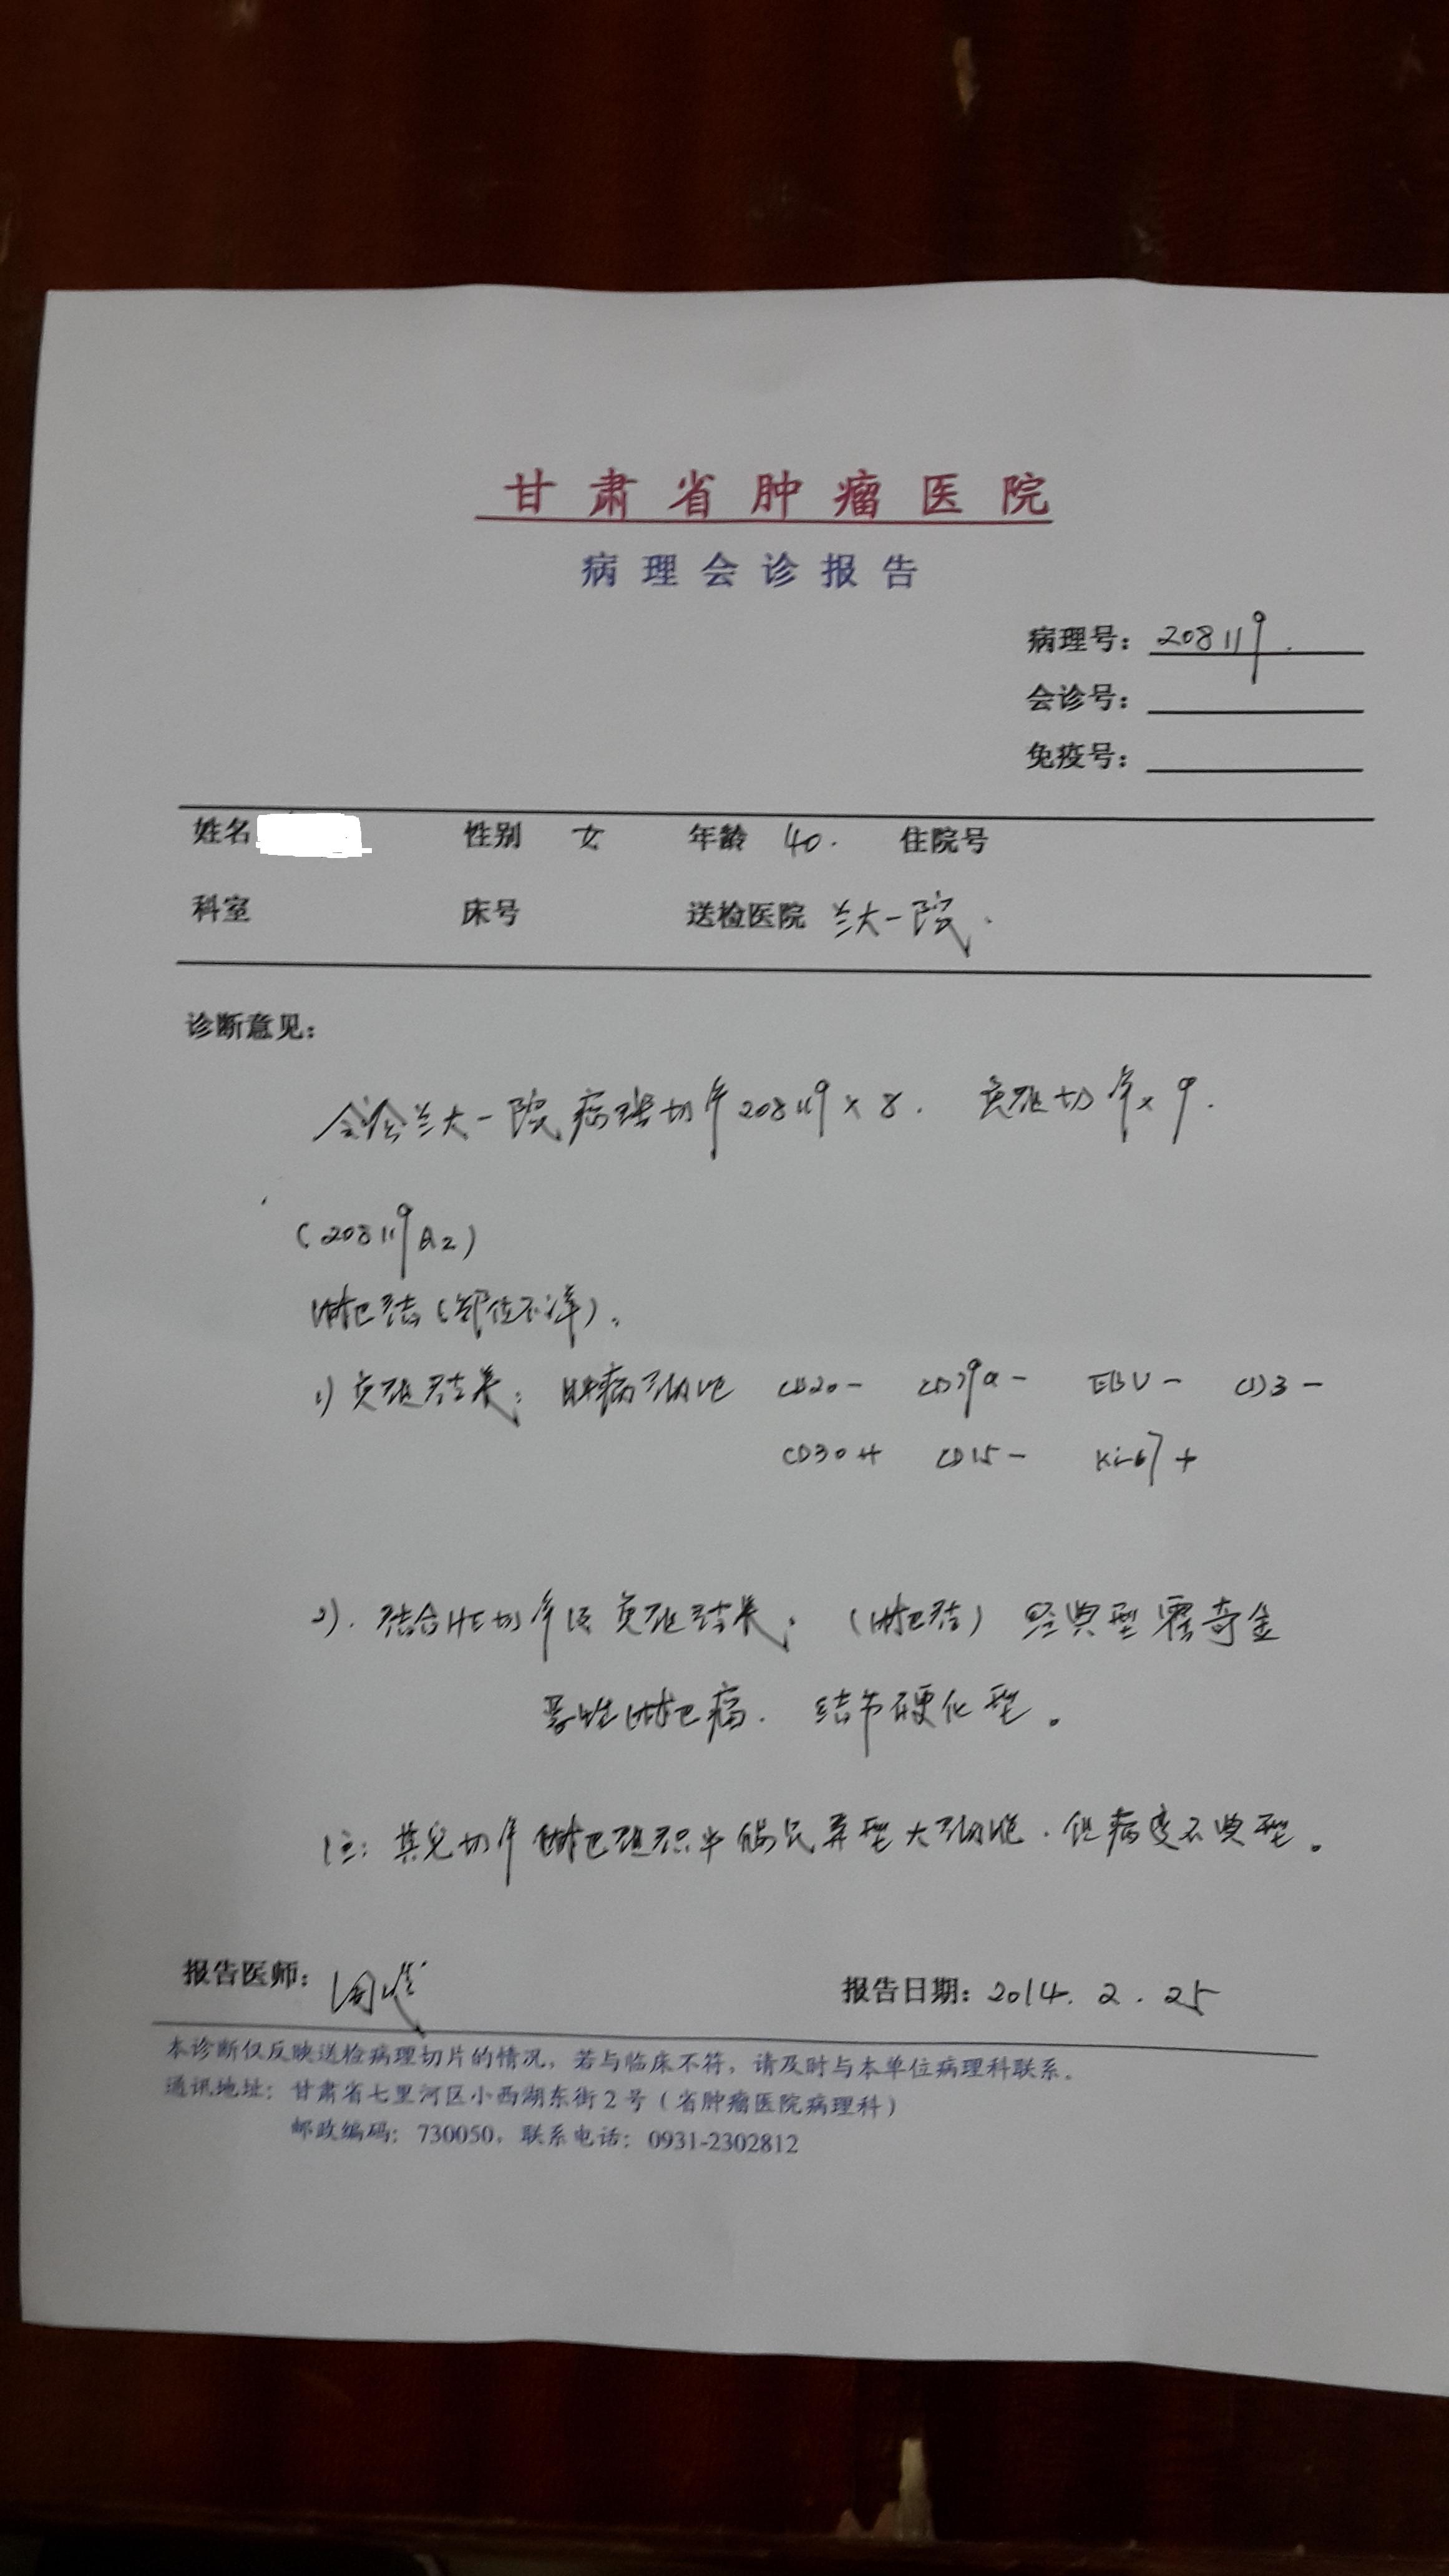 甘肃省肿瘤医院
病理会诊报告
病理号：208119.
会诊号：
免疫号：
姓名 性别 女 年龄 40. 住院号
科室 床号 送检医院 兰大一院.
诊断意见：
会诊兰大一院病理切片208119×8. 免组切片×9.
(208119A2)
淋巴结(部位不详)。
1) 免组结果：肿瘤细胞 CD20- CD79a- EBV- CD3-
CD30+ CD15- Ki-67+
2). 结合HE切片及免组结果：(淋巴结) 经典型霍奇金
恶性淋巴瘤. 结节硬化型。
注：其它切片淋巴组织中偶见异型大细胞.但病变不典型。
报告医师： 报告日期：2014.2.25
本诊断仅反映送检病理切片的情况，若与临床不符，请及时与本单位病理科联系。
通讯地址：甘肃省七里河区小西湖东街2号（省肿瘤医院病理科）
邮政编码：730050，联系电话：0931-2302812